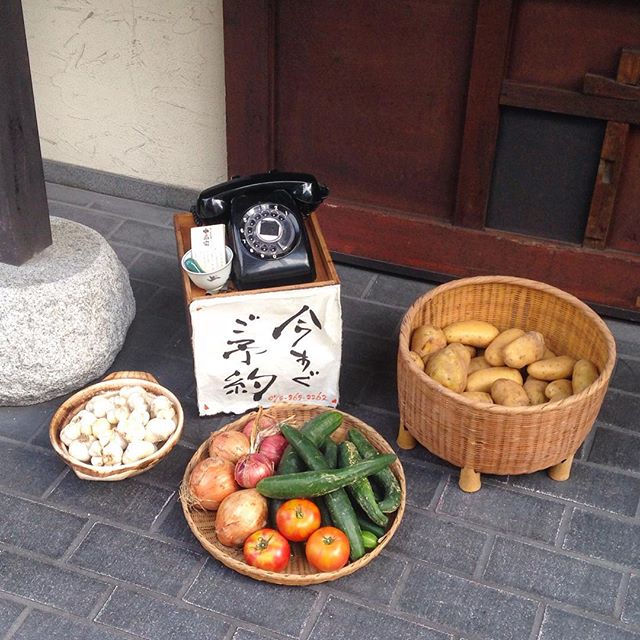 今すぐ
ご予約
075-265-2262